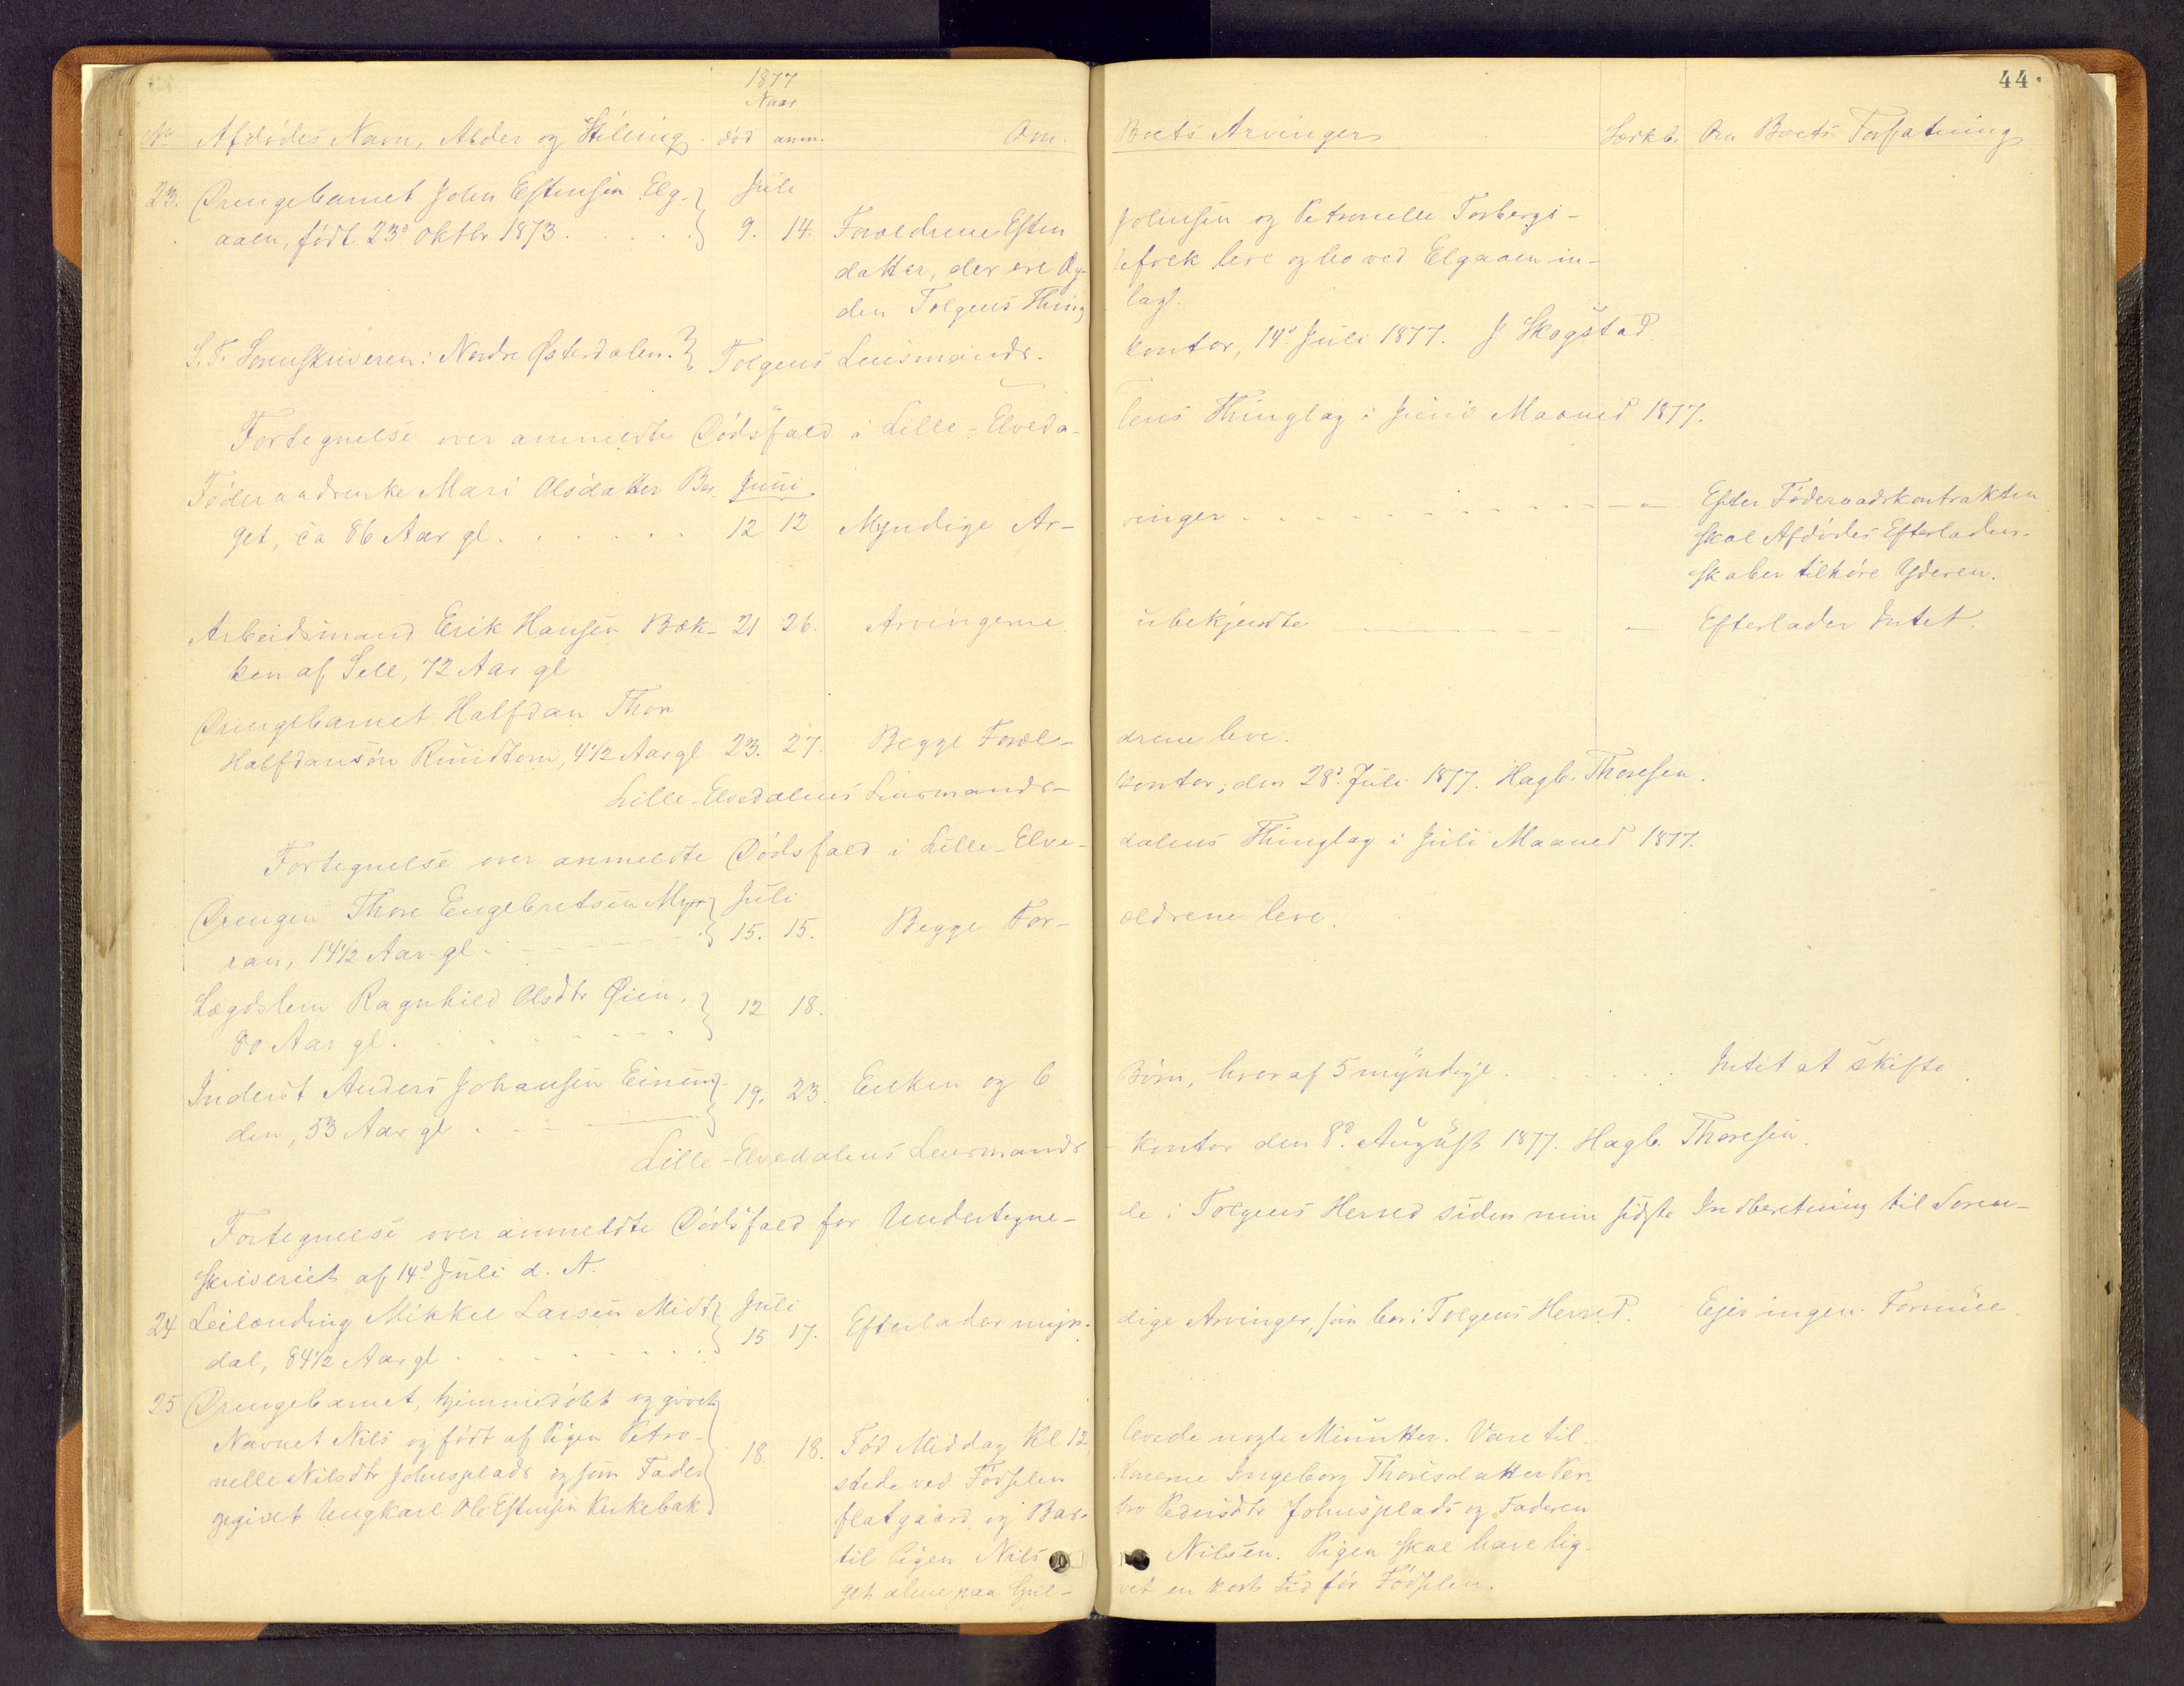 44.
1877
Naar
No. Afdødes Navn, Alder og Stilling. død anm. Om Boets Arvinger Særkb. Om Boets Forfatning
23. Drengebarnet John Estensen Elg- Juli
aaen, født 23de Oktbr 1873. 9. 14. Forældrene Esten Johnsen og Petronelle Torbergs-
datter, der ere Æg- tefolk leve og bo ved Elgaaen in-
den Tolgens Thing lag.
S. T. Sorenskriveren i Nordre Østerdalen. Tolgens Lensmands- kontor, 14de Juli 1877. J Skogstad
Fortegnelse over anmeldte Dødsfald i Lille-Elveda- lens Thinglag i Juni Maaned 1877.
Føderaadsenke Mari Olsdatter Ber- Juni
get, ca 86 Aar gl. 12 12 Myndige Ar- vinger - " - Efter Føderaadskontrakten
skal Afdødes Efterladen-
skaber tilhøre Yderen.
Arbeidsmand Erik Hansen Bæk- 21 26. Arvingerne ubekjendte Efterlader Intet.
ken af Sell, 72 Aar gl
Drengebarnet Halfdan Thor
Halfdansøn Rundtom, 4 1/2 Aar gl 23. 27. Begge Foræl- drene leve.
Lille-Elvedalens Lensmands- kontor, den 28de Juli 1877. Hagb. Thoresen.
Fortegnelse over anmeldte Dødsfald i Lille-Elve- dalens Thinglag i Juli Maaned 1877.
Drengen Thore Engebretsen Myr- Juli
ran, 14 1/2 Aar gl. 15. 15. Begge For- ældrene leve.
Lægdslem Ragnhild Olsdtr Øien,
80 Aar gl. 12 18.
Inderst Anders Johansen Einun- 19. 23. Enken og 6 Børn, hvoraf 5 myndige. Intet at skifte.
den, 53 Aar gl.
Lille-Elvedalens Lensmands- kontor den 8de August 1877. Hagb. Thoresen.
Fortegnelse over anmeldte Dødsfald for Undertegne- de i Tolgens Herred siden min sidste Indberetning til Soren-
skriveriet af 14de Juli d. A.
24 Leilænding Mikkel Larsen Midt- Juli
dal, 84 1/2 Aar gl. 15 17. Efterlader myn- dige Arvinger, som bor i Tolgens Herred. Ejer ingen Formue.
25 Drengebarnet, hjemmedøbt og givet
Navnet Nils og født af Pigen Petro-
nelle Nilsdtr Johnsplads og som Fader 18. 18. Fød Middag Kl 12, levede nogle Minutter. Vare til-
opgivet Ungkarl Ole Estensen Kirkebak stede ved Fødslen Konerne Ingeborg Thoresdatter Ver-
flatgaard og Bar- bro Pedersdtr Johnsplads og Faderen
til Pigen Nils Nilsen. Pigen skal have lig-
get alene paa Gul- vet en kort Tid før Fødslen.